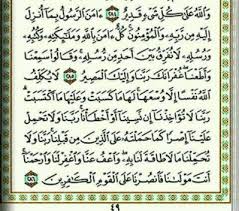 وَٱللَّهُ عَلَىٰ كُلِّ شَىْءٍ قَدِيرٌ ٢٨٤ ءَامَنَ ٱلرَّسُولُ بِمَآ أُنزِلَ
إِلَيْهِ مِن رَّبِّهِۦ وَٱلْمُؤْمِنُونَ ۚ كُلٌّ ءَامَنَ بِٱللَّهِ وَمَلَٰٓئِكَتِهِۦ وَكُتُبِهِۦ
وَرُسُلِهِۦ لَا نُفَرِّقُ بَيْنَ أَحَدٍ مِّن رُّسُلِهِۦ ۚ وَقَالُوا۟ سَمِعْنَا
وَأَطَعْنَا ۖ غُفْرَانَكَ رَبَّنَا وَإِلَيْكَ ٱلْمَصِيرُ ٢٨٥ لَا يُكَلِّفُ
ٱللَّهُ نَفْسًا إِلَّا وُسْعَهَا ۚ لَهَا مَا كَسَبَتْ وَعَلَيْهَا مَا ٱكْتَسَبَتْ ۗ
رَبَّنَا لَا تُؤَاخِذْنَآ إِن نَّسِينَآ أَوْ أَخْطَأْنَا ۚ رَبَّنَا وَلَا تَحْمِلْ
عَلَيْنَآ إِصْرًا كَمَا حَمَلْتَهُۥ عَلَى ٱلَّذِينَ مِن قَبْلِنَا ۚ رَبَّنَا وَلَا
تُحَمِّلْنَا مَا لَا طَاقَةَ لَنَا بِهِۦ ۖ وَٱعْفُ عَنَّا وَٱغْفِرْ لَنَا وَٱرْحَمْنَآ ۚ
أَنتَ مَوْلَىٰنَا فَٱنصُرْنَا عَلَى ٱلْقَوْمِ ٱلْكَٰفِرِينَ ٢٨٦
٤٩